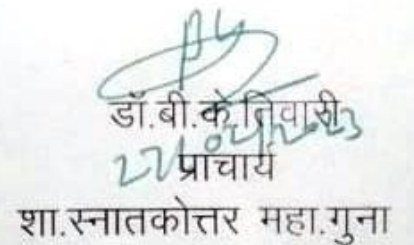 डॉ.बी.के.तिवारी
प्राचार्य
शा.स्नातकोत्तर महा.गुना